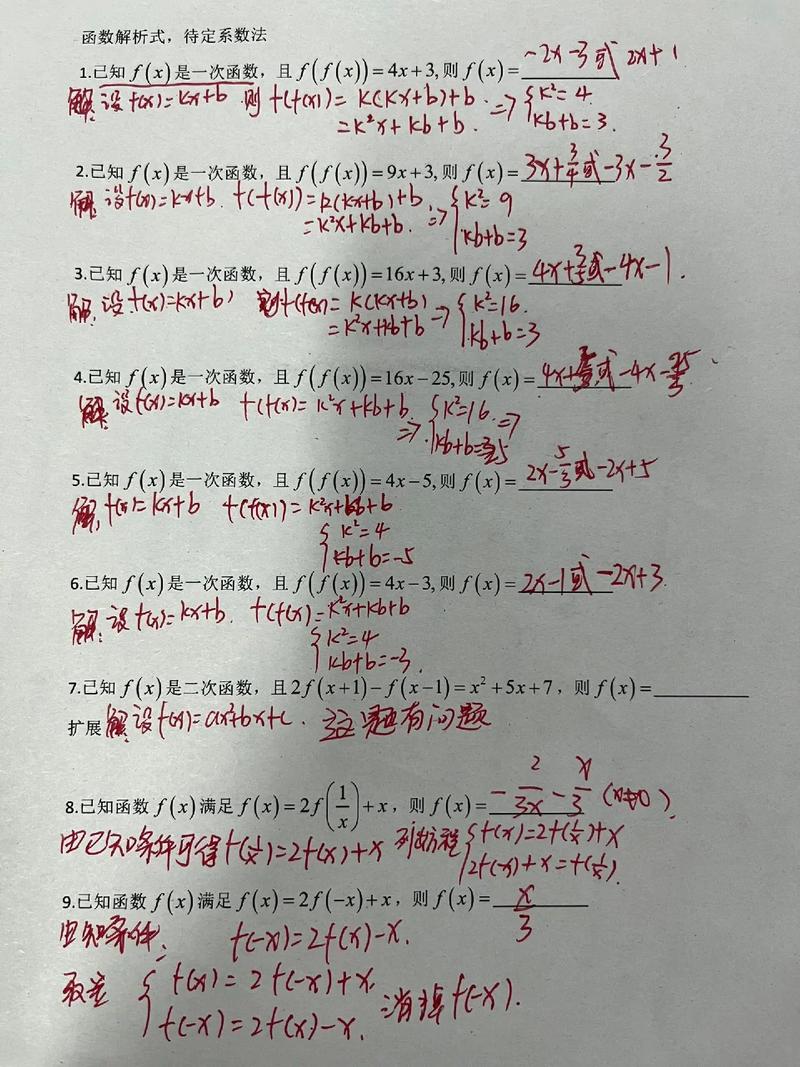 函数解析式，待定系数法
1.已知 f(x) 是一次函数，且 f(f(x))=4x+3,则 f(x)= -2x-3或 2x+1
解:设 f(x)=kx+b 则 f(f(x))= k(kx+b)+b ⇒ {k²=4
=k²x+kb+b. kb+b=3.
2.已知 f(x) 是一次函数，且 f(f(x))=9x+3,则 f(x)= 3x+3/4或-3x-3/2
解:设f(x)=kx+b. f(f(x))=k(kx+b)+b ⇒ {k²=9
=k²x+kb+b. kb+b=3
3.已知 f(x) 是一次函数，且 f(f(x))=16x+3,则 f(x)= 4x+3/5或-4x-1.
解:设f(x)=kx+b, f(f(x))= k(kx+b) ⇒ {k²=16.
=k²x+kb+b kb+b=3
4.已知 f(x) 是一次函数，且 f(f(x))=16x-25,则 f(x)= 4x+ 或-4x-
解:设f(x)=kx+b f(f(x))= k²x+kb+b. ⇒ {k²=16. ⇒
kb+b=
5.已知 f(x) 是一次函数，且 f(f(x))=4x-5,则 f(x)= 2x-5/3或-2x+5
解, f(x)=kx+b f(f(x))=k²x+kb+b
{k²=4
kb+b=-5
6.已知 f(x) 是一次函数，且 f(f(x))=4x-3,则 f(x)= 2x-1或-2x+3.
解:设f(x)=kx+b. f(f(x))=k²x+kb+b
{k²=4
kb+b=-3.
7.已知 f(x) 是二次函数，且 2f(x+1)-f(x-1)=x²+5x+7，则 f(x)=
扩展 解:设f(x)=ax²+bx+c. 这题有问题
8.已知函数 f(x) 满足 f(x)=2f(1/x)+x，则 f(x)= -2/3x-x/3 (x≠0).
由已知条件可得f(1/x)=2f(x)+x 列方程 {f(x)=2f(1/x)+x
2f(x)+x=f(1/x).
9.已知函数 f(x) 满足 f(x)=2f(-x)+x，则 f(x)= x/3
由知条件, f(-x)=2f(x)-x.
{f(x)=2f(-x)+x.
f(-x)=2f(x)-x. 消掉f(-x).